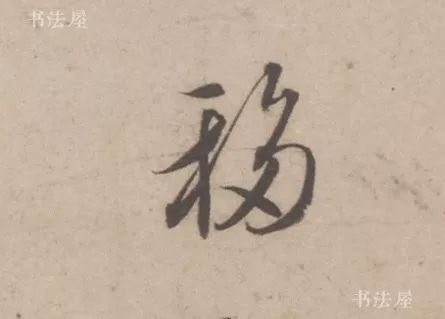 书法屋
移
书法屋